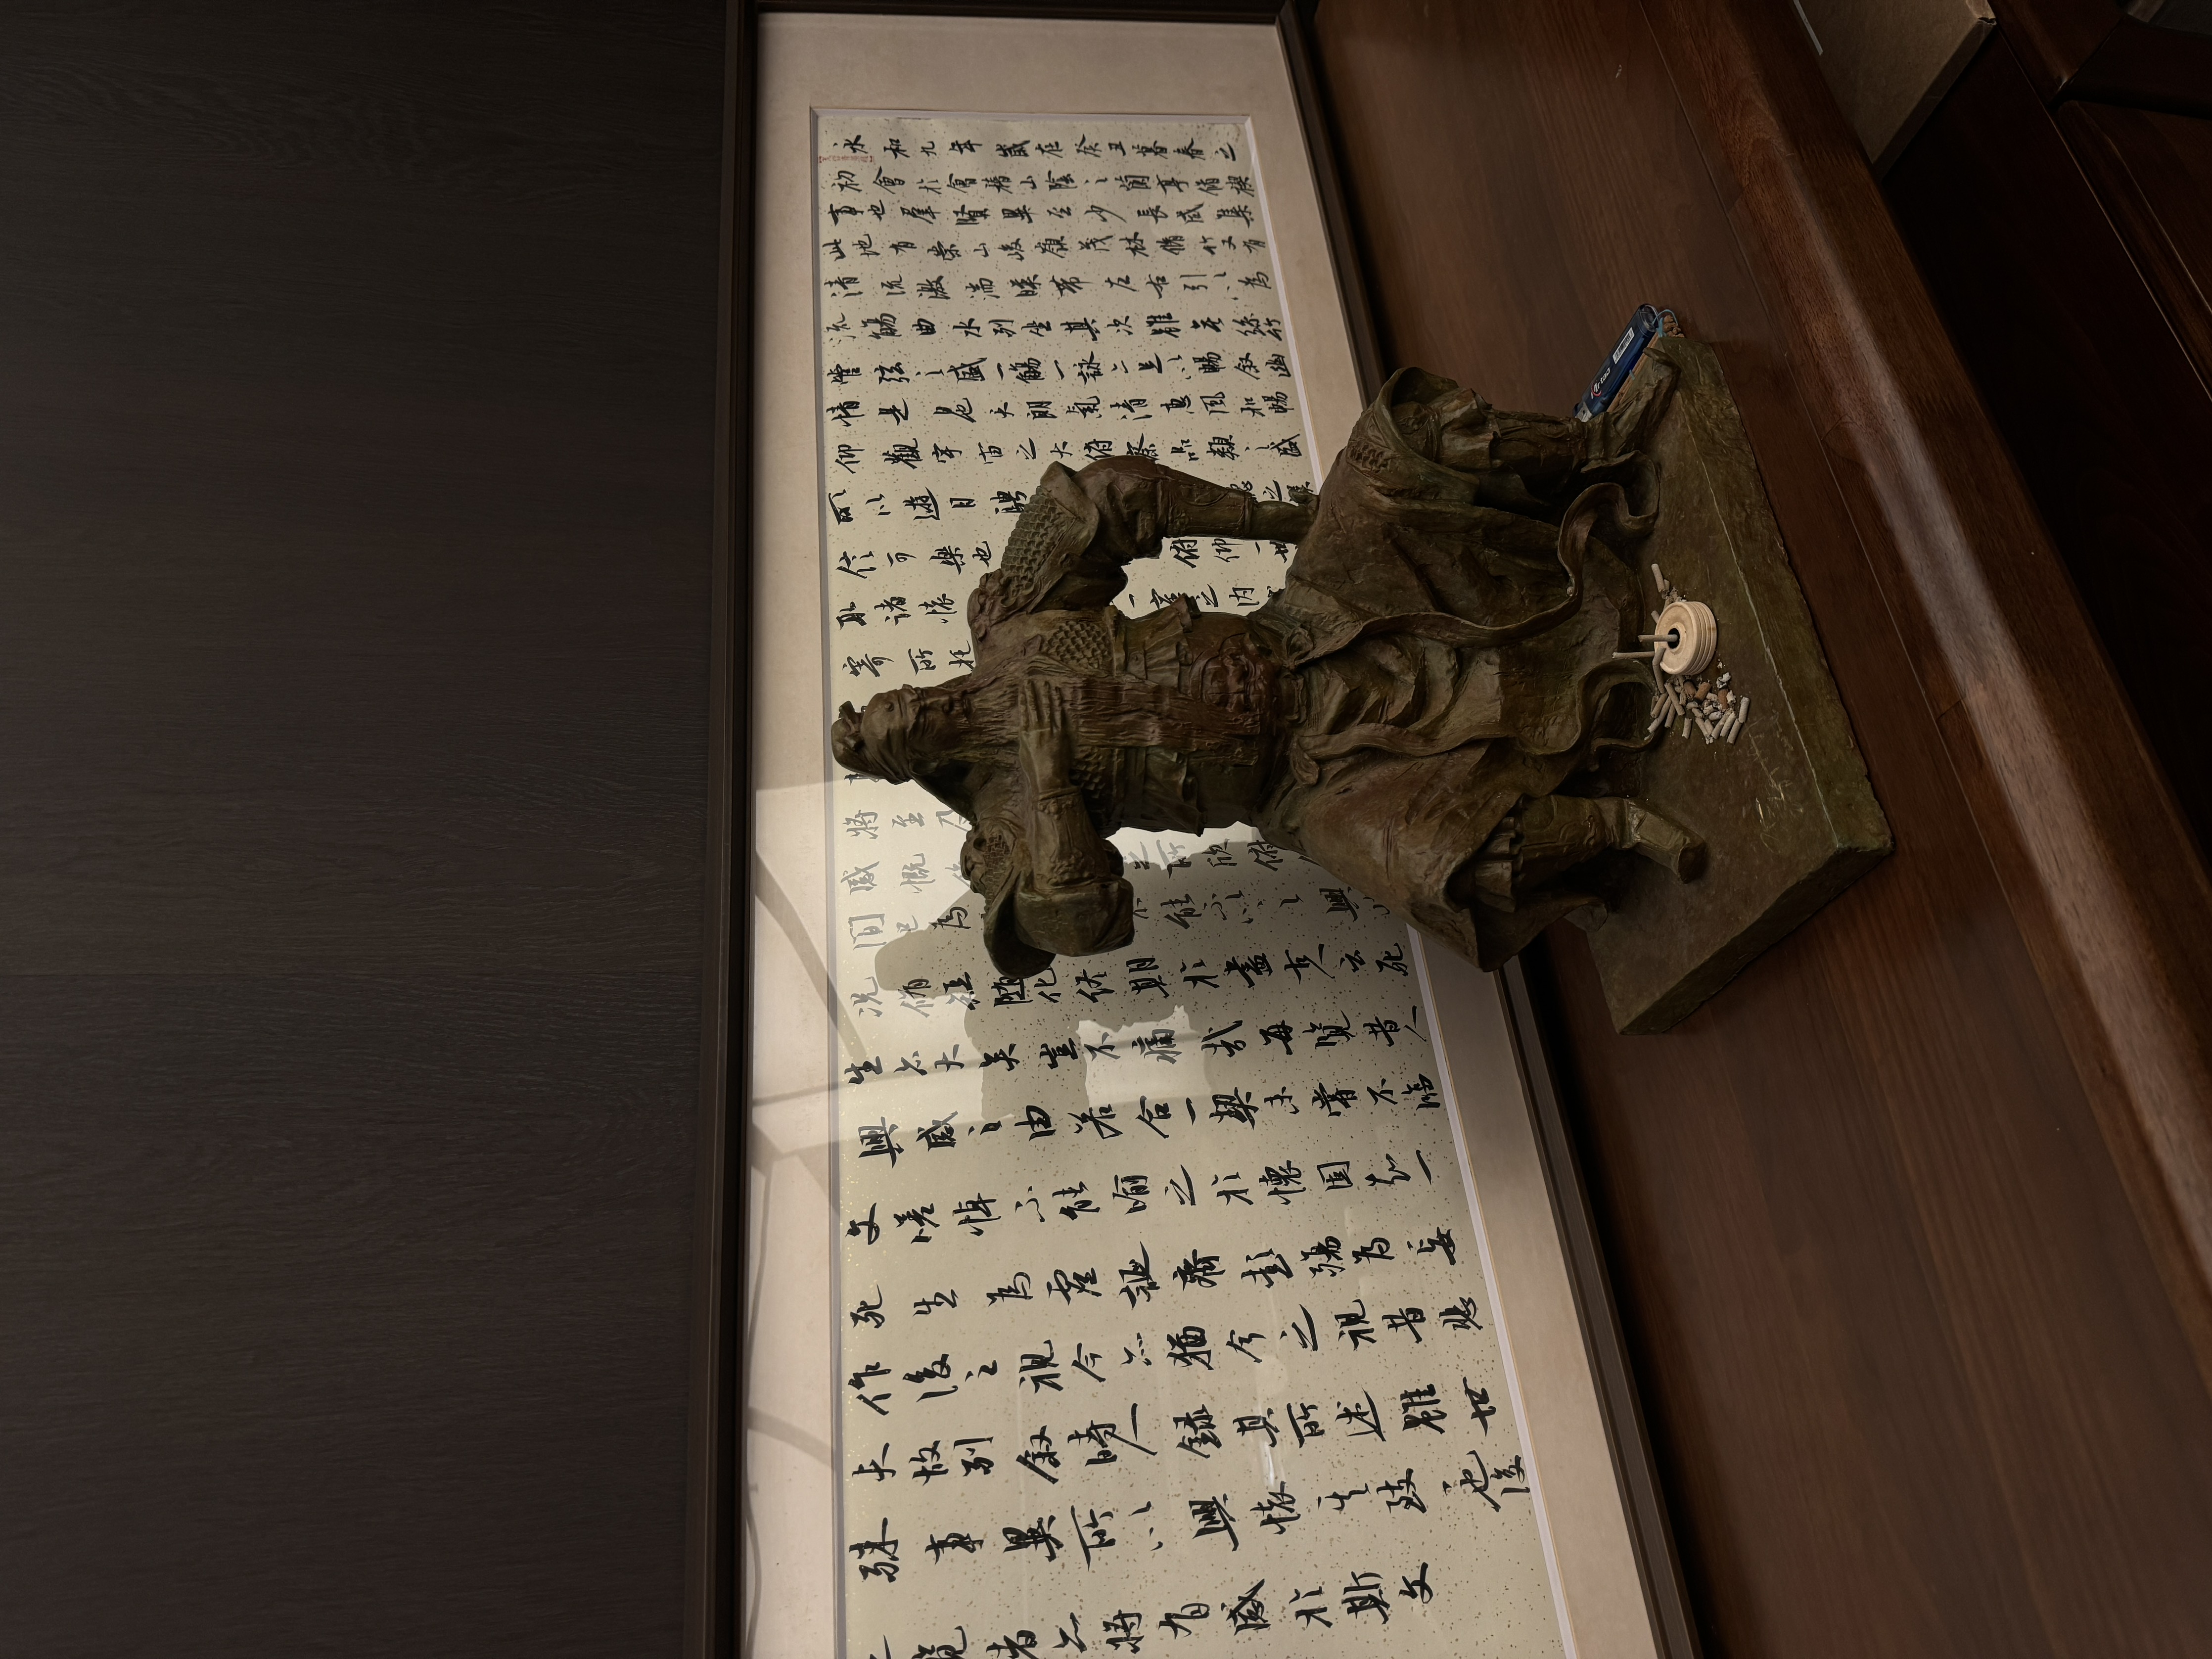 永和九年歲在癸丑暮春之
初會於會稽山陰之蘭亭脩禊
事也羣賢畢至少長咸集
此地有崇山峻嶺茂林脩竹又有
清流激湍暎帶左右引以為
流觴曲水列坐其次雖無絲竹
管弦之盛一觴一詠亦足以暢敘幽
情是日也天朗氣清惠風和暢
仰觀宇宙之大俯察品類之盛
所以遊目騁
信可樂也 俯仰一世
取諸懷 一室之內
寄所托
將至及
感慨 所欣俯
間已為 不能不以之興
況脩短隨化終期於盡古人云死
生亦大矣豈不痛哉每覽昔人
興感之由若合一契未嘗不臨
文嗟悼不能喻之於懷固知一
死生為虛誕齊彭殤為妄
作後之視今亦猶今之視昔悲
夫故列敘時人錄其所述雖世
殊事異所以興懷其致一也後
之覽者亦將有感於斯文